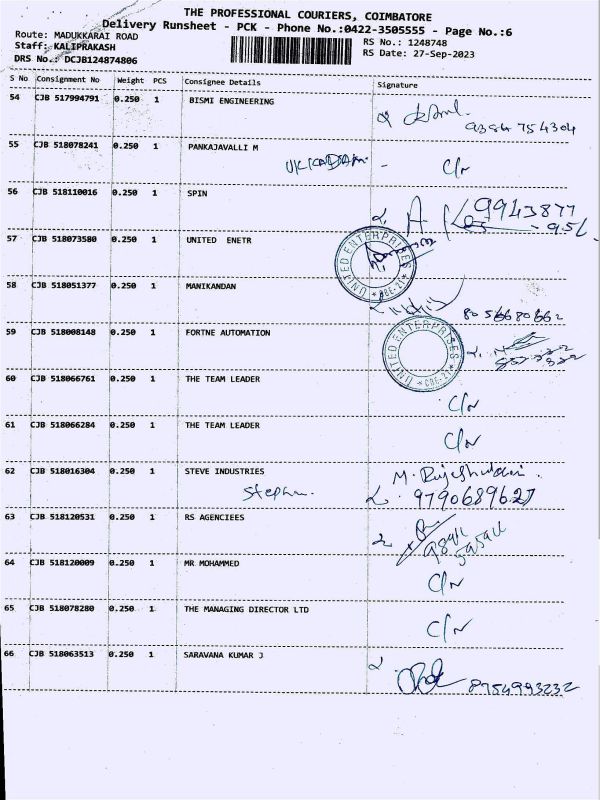 THE PROFESSIONAL COURIERS, COIMBATORE
Delivery Runsheet - PCK - Phone No.:0422-3505555 - Page No.:6
Route: MADUKKARAI ROAD
Staff: KALIPRAKASH
DRS No.: DCJB124874806
RS No.: 1248748
RS Date: 27-Sep-2023
S No Consignment No Weight PCS Consignee Details Signature
54 CJB 517994791 0.250 1 BISMI ENGINEERING
9384 754304
55 CJB 518078241 0.250 1 PANKAJAVALLI M
UKKADAM - C/r
56 CJB 518110016 0.250 1 SPIN
9943877
957
57 CJB 518073580 0.250 1 UNITED ENETR
UNITED ENTERPRISES * CBE-21 *
58 CJB 518051377 0.250 1 MANIKANDAN
8056680662
59 CJB 518008148 0.250 1 FORTNE AUTOMATION
UNITED ENTERPRISES * CBE-21 *
60 CJB 518066761 0.250 1 THE TEAM LEADER
C/r
61 CJB 518066284 0.250 1 THE TEAM LEADER
C/r
62 CJB 518016304 0.250 1 STEVE INDUSTRIES
Stephn. M. 9790689627
63 CJB 518120531 0.250 1 RS AGENCIEES
64 CJB 518120009 0.250 1 MR MOHAMMED
C/r
65 CJB 518078280 0.250 1 THE MANAGING DIRECTOR LTD
C/r
66 CJB 518063513 0.250 1 SARAVANA KUMAR J
8754993232